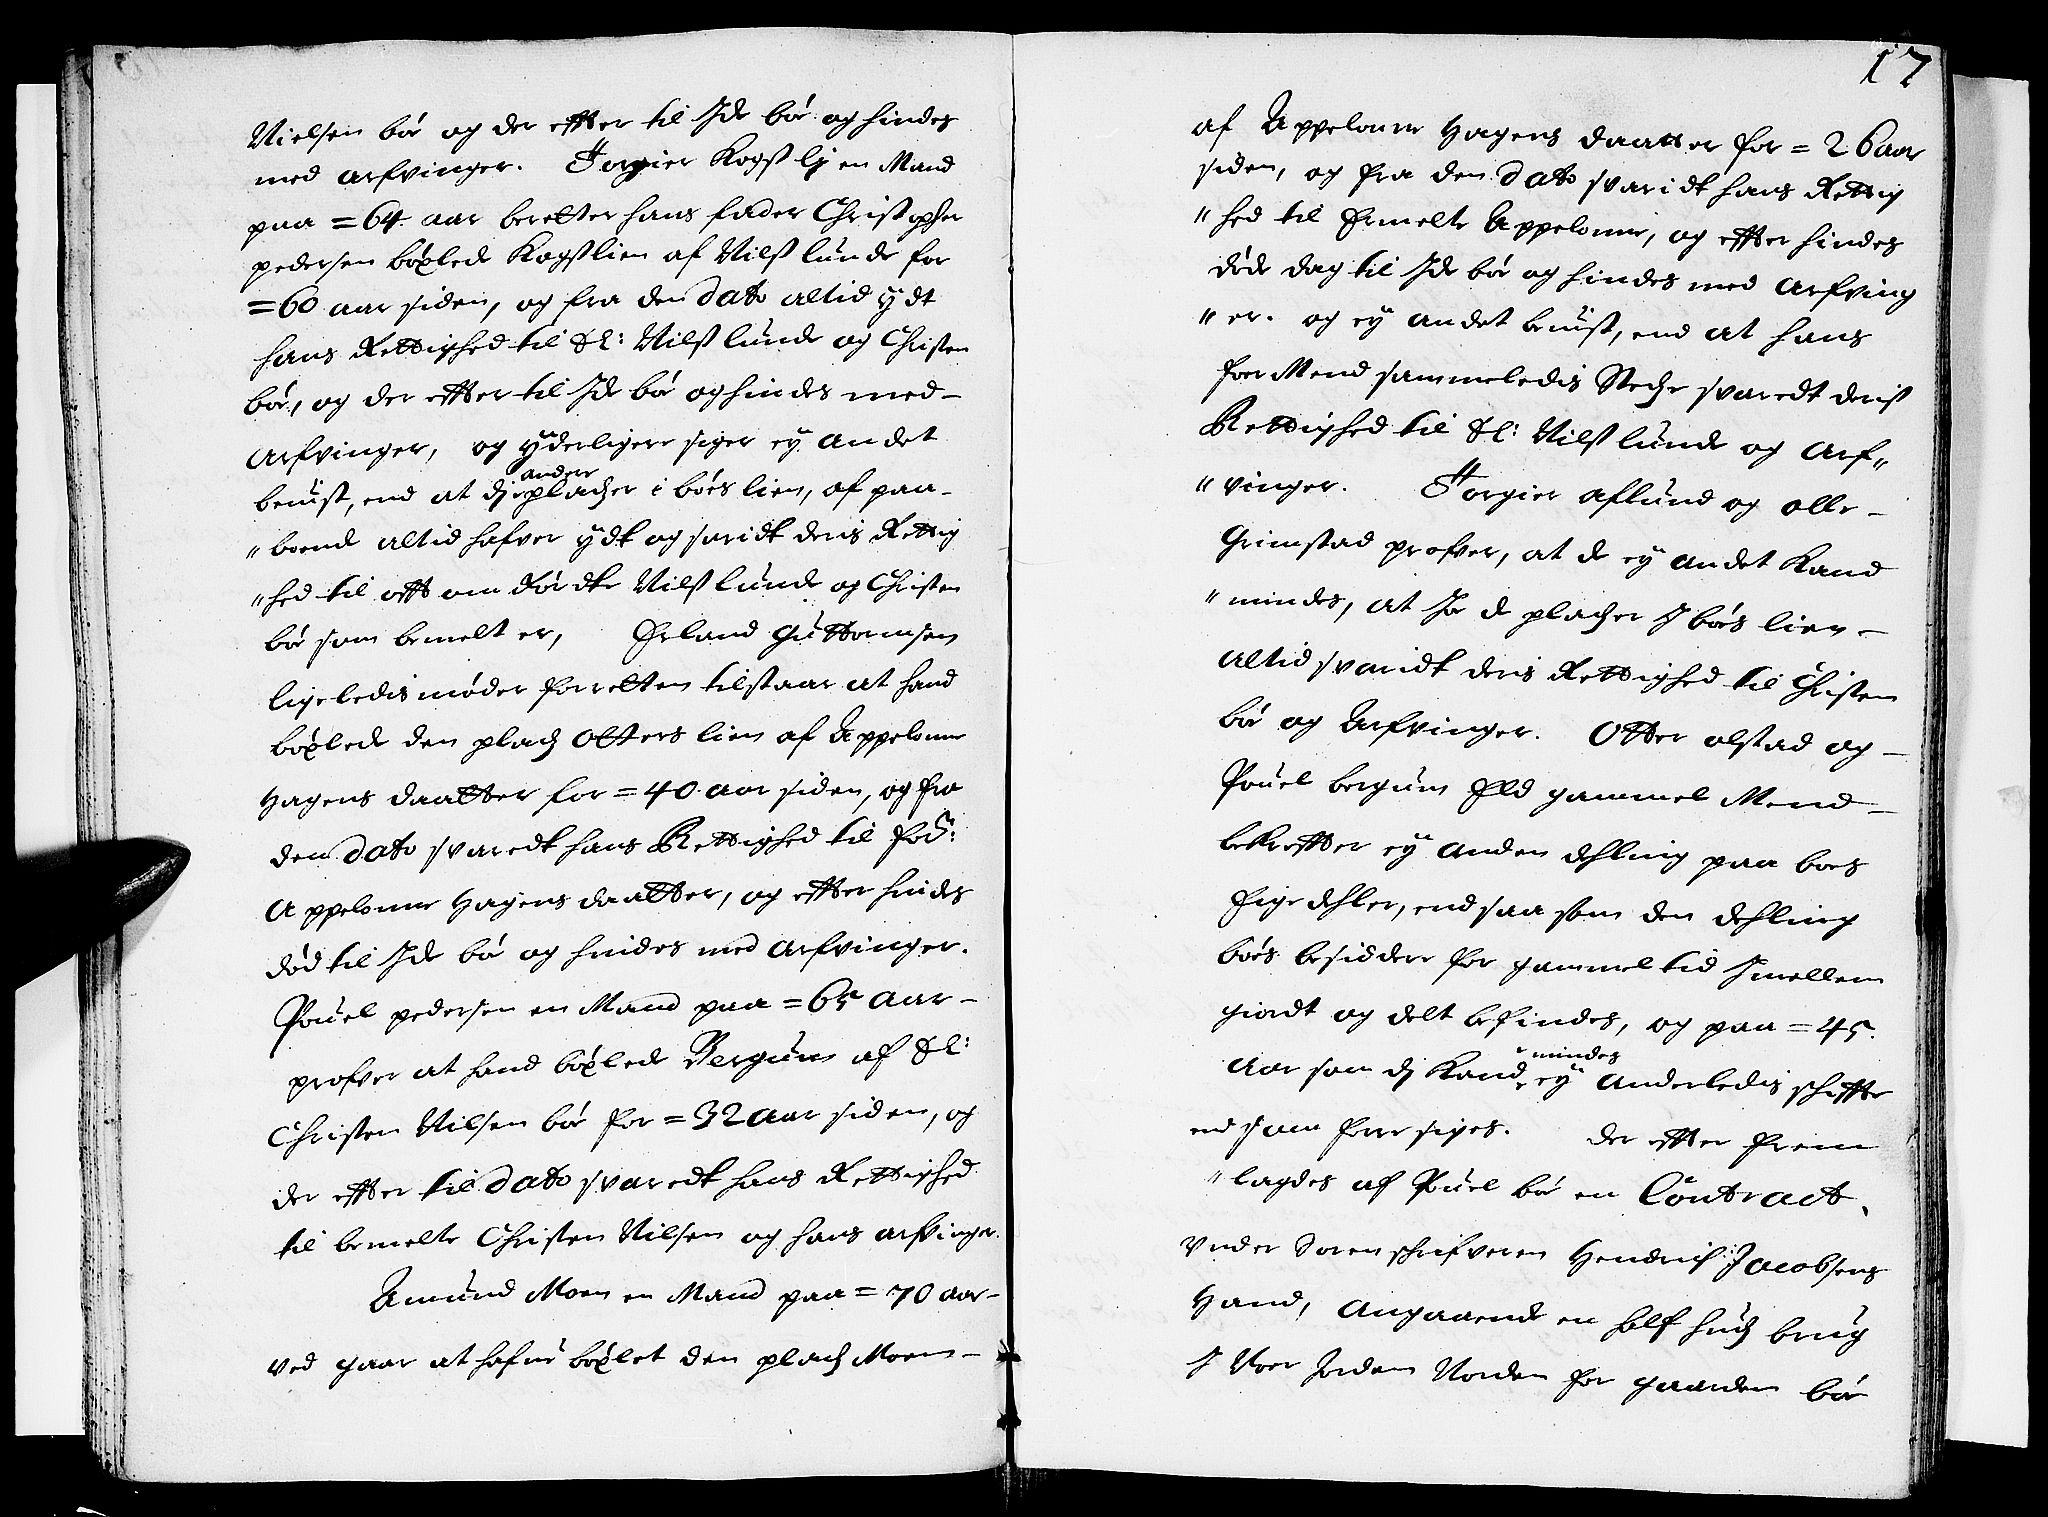 Nielsen bör og der effter til Ide bör og hindes
med arfvinger. Torgier Kogslj en Mand
paa = 64 aar beretter hans fader Christopher
pedersen böxlede Kogslien af Nils lunde for
= 60 aar siden, og fra den dato altid ydt
hans Rettighed til Sl: Nils lunde og Christen
bör, og der effter til Ide bör og hindes med-
arfvinger, og ÿderligere siger eÿ andet
beuist, end at dj andre pladtzer i börs lien, af paa-
" boende altid hafver ÿdt og svaridt deris Rettig
" hed til offt om rördte Nils lunde og Christen
bör som bemelt er, Erland Guttormsen
ligeledis möder for retten tilstaar at hand
böxlede den pladtz Otters lien af Appelone
Hagens daatter for = 40 aar siden, og fra
den dato svaredt hans Rettighed til fod:
Appelone Hagens daatter, og effter hindes
död til Ide bör og hindes med arfvinger.
Pouel pedersen en Mand paa = 65 aar-
profver at hand böxlede Bergum af Sl:
Christen Nilsen bör for = 32 aar siden, og
der effter til dato svaredt hans Rettighed
til bemelte Christen Nilsen og hans arfvinger.
Amund Moen en Mand paa = 70 aar-
ved gaar at hafue böxlet den pladtz Moen-
17
af Appelone Hagens daatter for = 26 aar
siden, og fra den dato svaridt hans Rettig
" hed til Ermelte Appelone, og effter hindes
döde dag til Ide bör og hindes med arfving
" er. og eÿ andet beuist, end at hans
for Mend sammeledis Stedtze svaredt deris
Rettighed til Sl: Nils lunde og arf"
" vinger. Torgier aslund og olle-
Grimstad profver, at de eÿ andet Kand
" mindes, at Jo de pladtzer I börs lien-
altid svaridt deris Rettighed til Christen
bör og Arfvinger. Otter alstad og-
Pouel bergum Eld gammel Mend-
bekreffter eÿ anden dehling paa boes
Eigedehler, end saa som den dehling
börs besiddere for gammel tid Imellem
giordt og delt befindes, og paa = 45.
Aar som dj Kand mindes eÿ anderledis schiffte
end som forre siges. der effter frem
" lagdes af Pouel bör en Contract,
Vnder Sorenschrifveren Hendrich Jacobsens
Hand, angaaende en half hudtz brug
I Noer Jorden Norden for gaarden bör